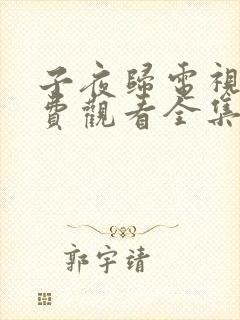 子夜歸電視
費觀看全集
郭宇靖